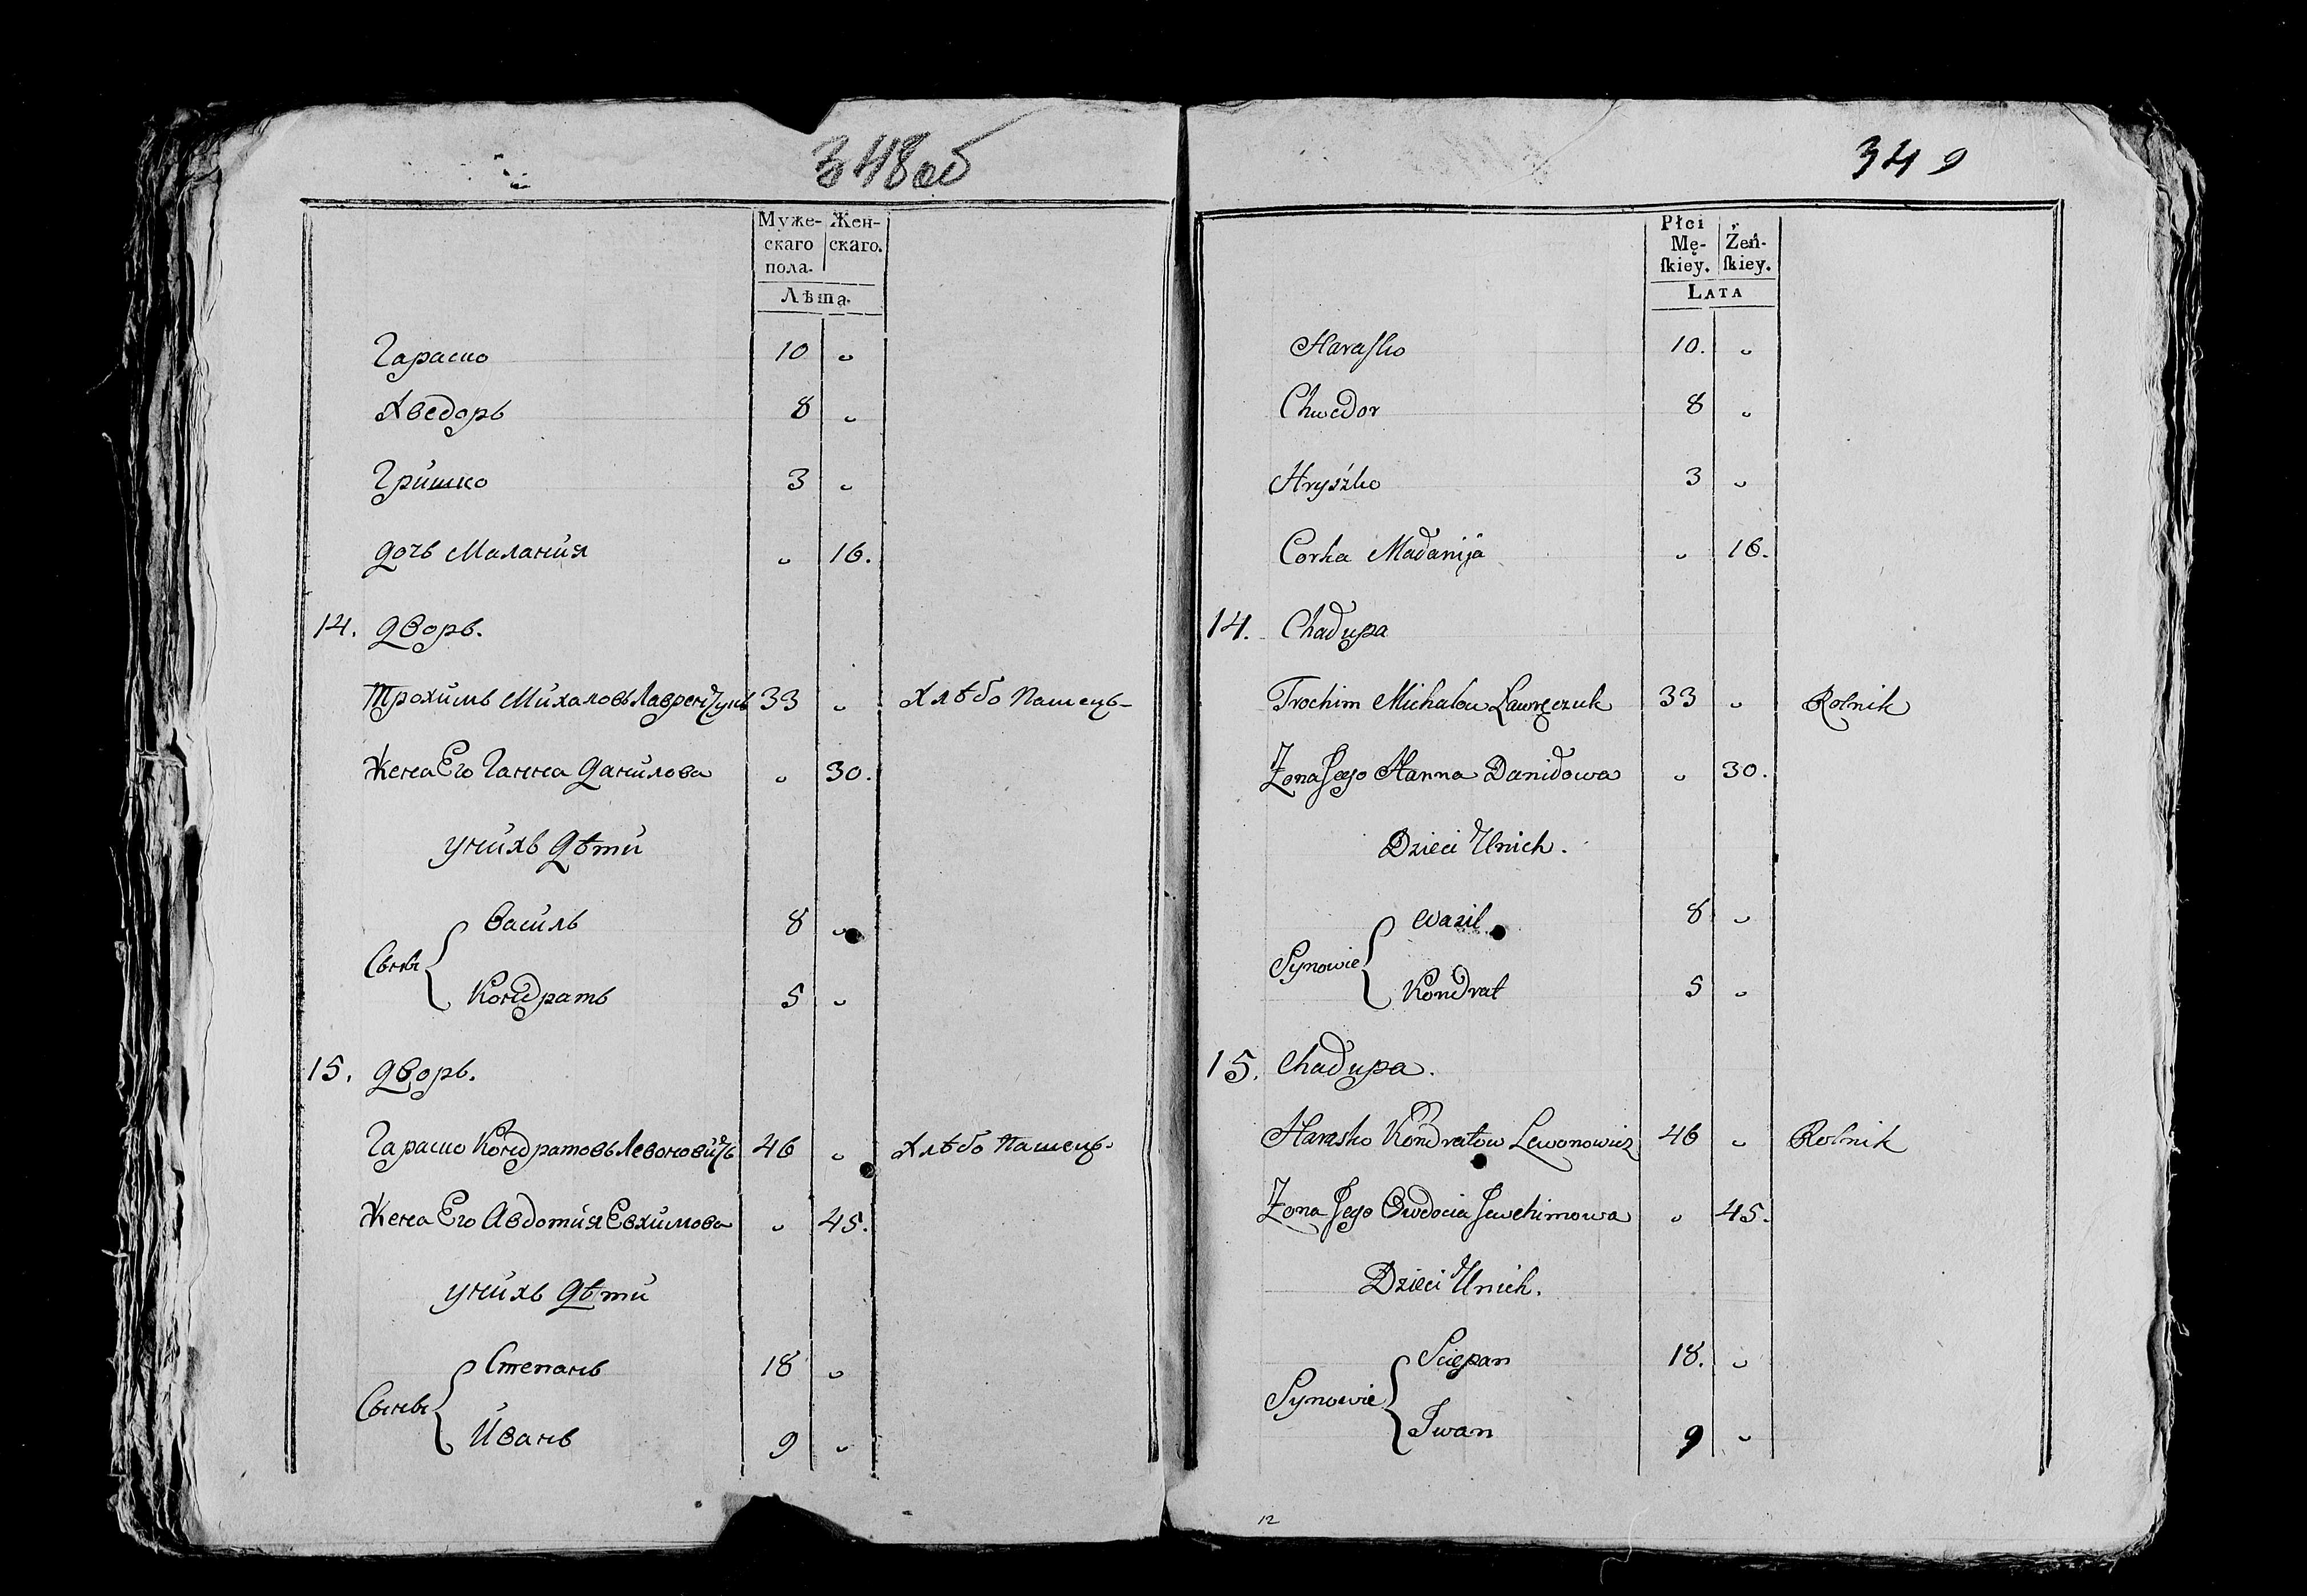 348об
Муже- Жен-
скаго скаго.
пола.
Лѣта.
Гараско 10 „
Хведоръ 8 „
Гришко 3 „
дочь Малания „ 16.
14. дворъ.
Трохимъ Михаловъ Лавренчукъ 33 „ Хлѣбо Пашецъ
Жена Его Ганна Данилова „ 30.
у нихъ дѣти
Василь 8 „
Сыны
Кондратъ 5 „
15. дворъ.
Гараско Кондратовъ Левоновичъ 46 „ Хлѣбо Пашецъ
Жена Его Авдотия Евхимова „ 45.
у нихъ дѣти
Степанъ 18 „
Сыны
Иванъ 9 „
349
Płci
Mę- Żeń-
ſkiey. ſkiey.
LATA
Haraſko 10. „
Chwedor 8 „
Hryśzko 3 „
Corka Małanija „ 16.
14. Chałupa
Trochim Michałow Ławręczuk 33 „ Rolnik
Żona Jego Hanna Daniłowa „ 30.
Dzieci Unich.
Wasil 8 „
Synowie
Kondrat 5 „
15. Chałupa.
Harasko Kondratow Lewonowicz 46 „ Rolnik
Żona Jego Owdocia Jewchimowa „ 45.
Dzieci Unich.
Sciepan 18. „
Synowie
Iwan 9 „
12